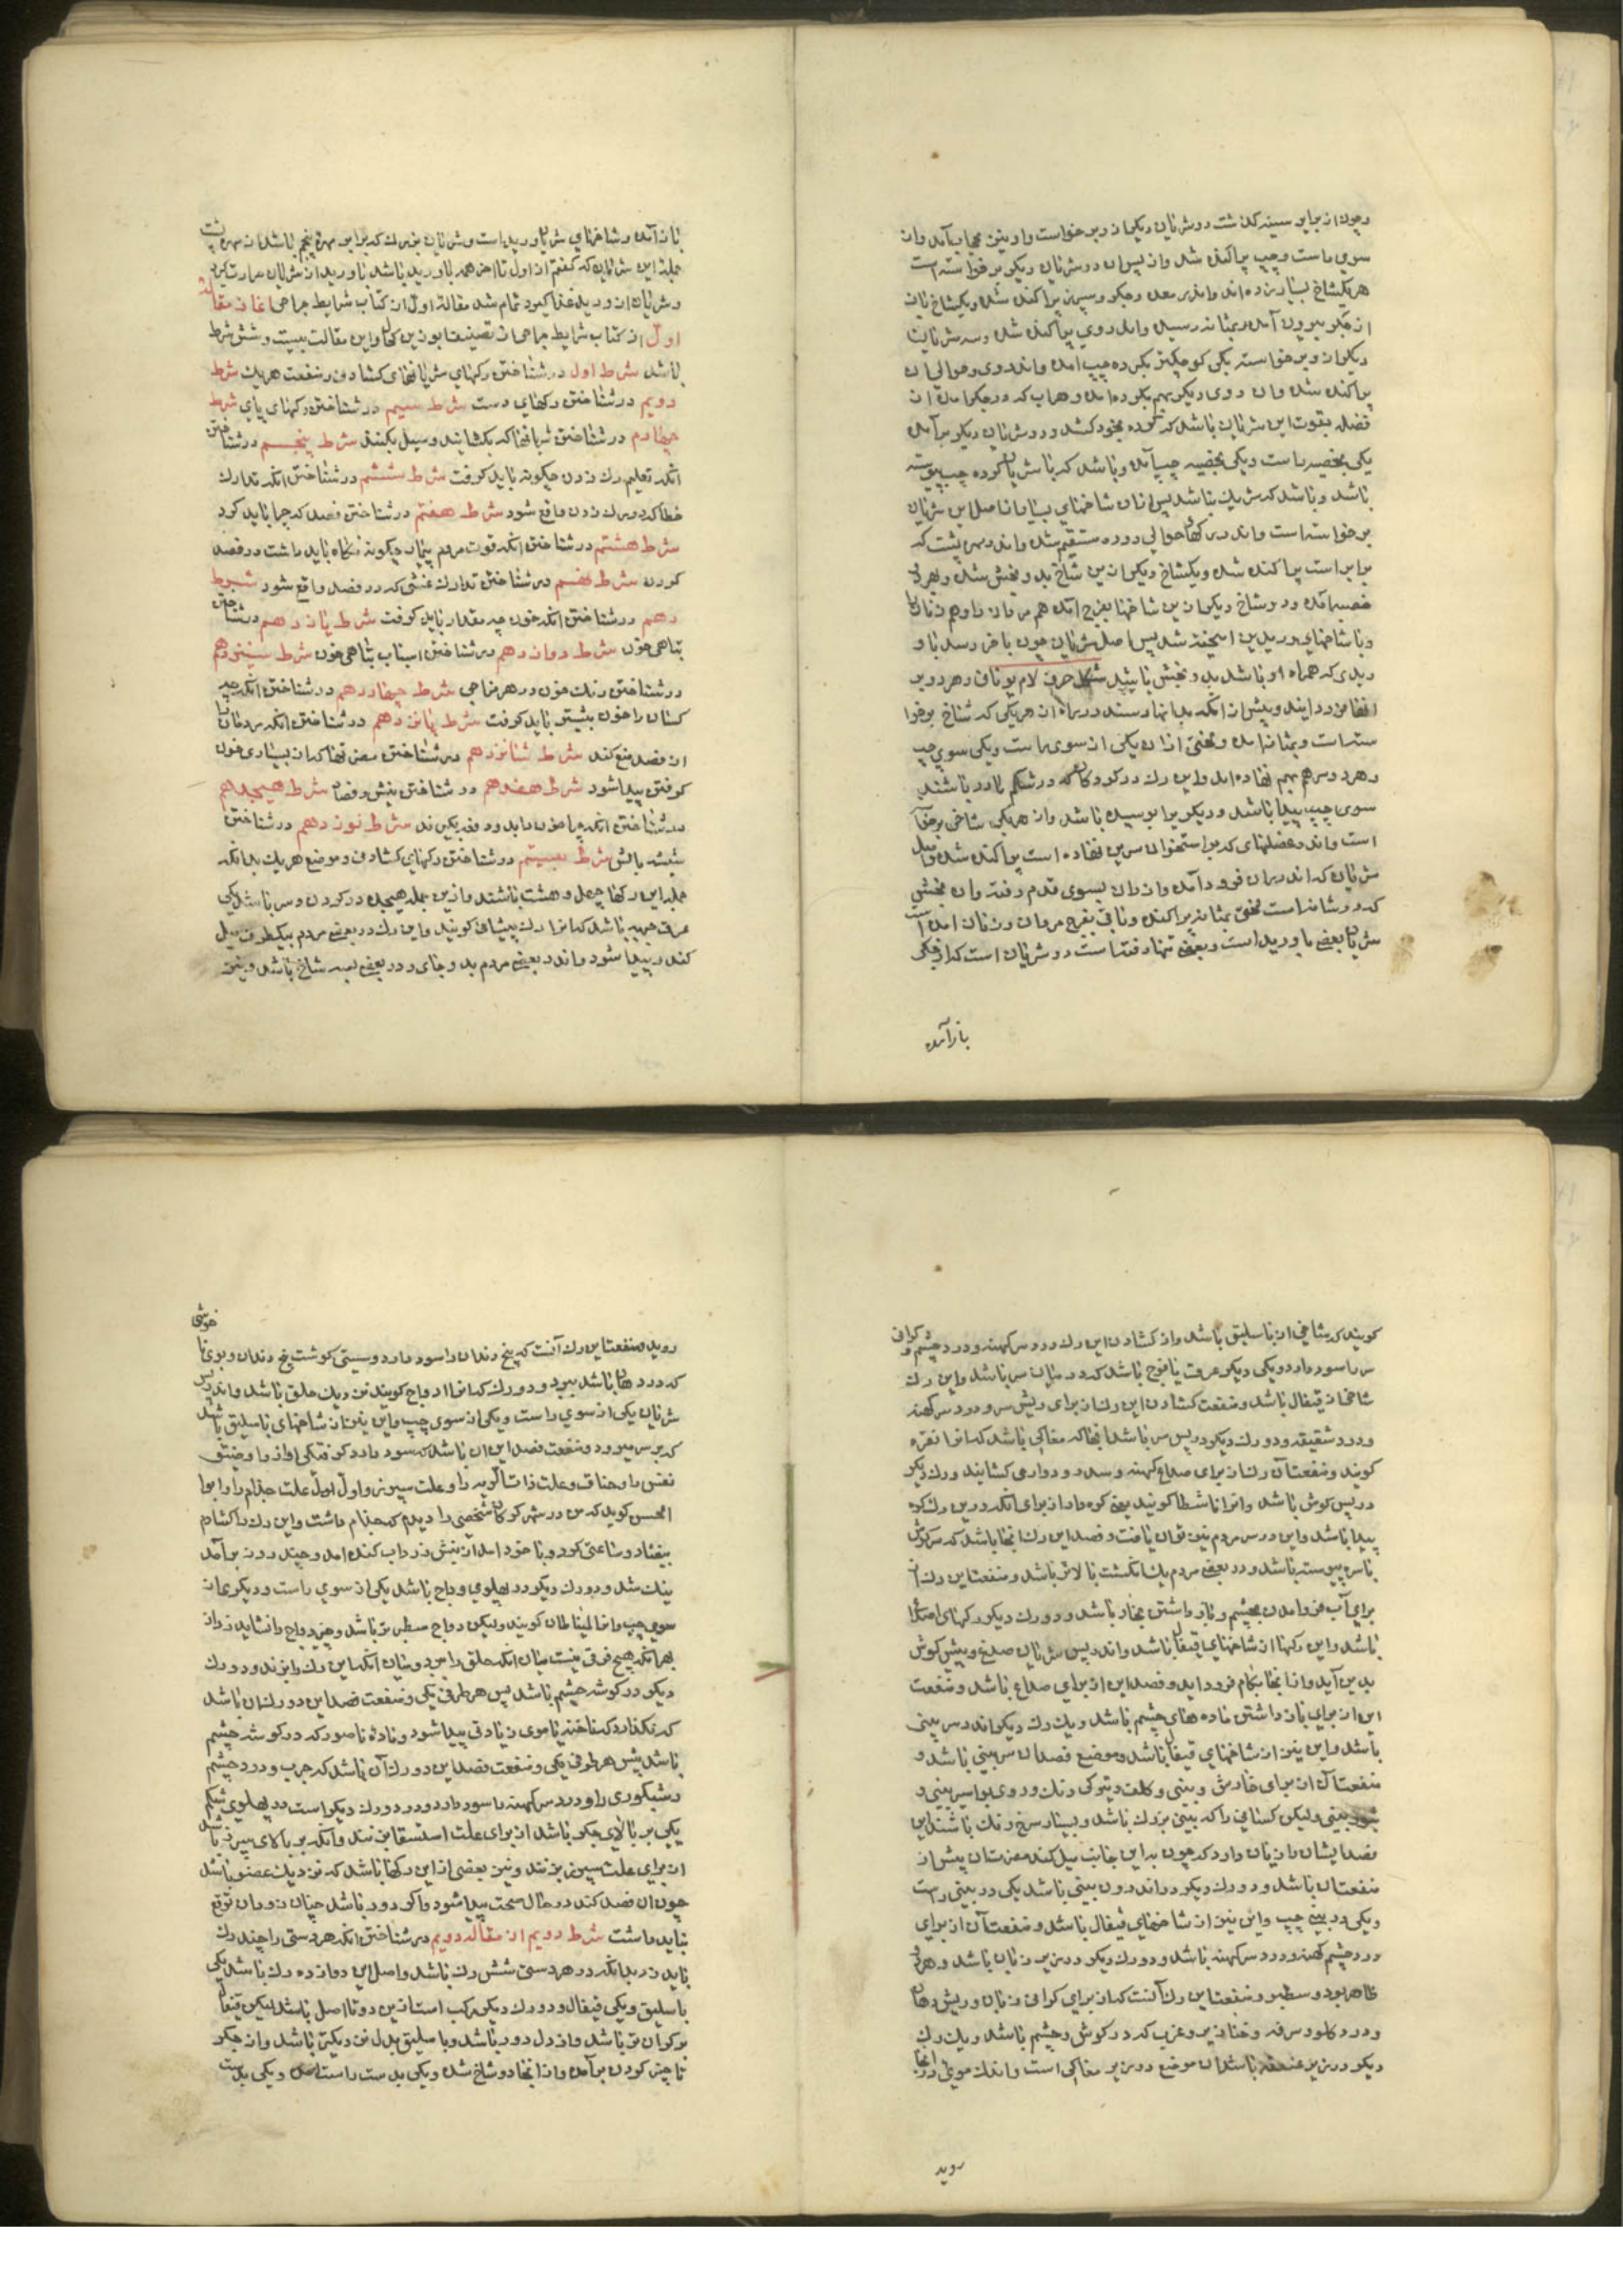 و چون از برابر سینه کذشت دو شریان دیکر از وبر خواست و او نیز بحجاب آمد و از
سوی راست و چپ پراکنده شد و از پس ان دو شریان دیکر بر خواسته است
هر یکشاخ بسیار زده اند و اندر معده و جکر و سپرز پراکنده شده و یکشاخ ازین
از جکر بیرون آمده بمثانه رسیده و اندر وی پراکنده شده و سه شریان
دیکر از وبر خواسته یکی کوچکتر بکرده چپ امده و اندر وی و حوالی ان
پراکنده شده و ان دوی دیکر بهم بکرده امده و هر اب که در جکر آمده از
فضله بقوت این شریان باشد که کرده بخود کشد و دو شریان دیکر بر آمده
یکی بخصیه راست و یکی بخصیه چپ آمده و باشد که با شریان کرده چپ پیوسته
باشد و باشد که شریک نباشد پس ازان شاخهای بسیار از اصل این شریان
بر خواسته است و اندر رکهای حوالی روده مستقیم شده و اندر مهره پشت که
برابر است پراکنده شده و یکشاخ دیکر ازین شاخ بدو بخش شده و بهر دو
خصیه آمده و دو شاخ دیکر ازین شاخها بفرج آمده هم مردان را و هم زنان را
و با شاخهای وریدین امیخته شده پس اصل شریان چون باخر رسد با و
ریدی که همراه او باشد بدو بخش باشد شکل حرف لام یونانی و هر دو بر
و بمثانه امده و بعضی ازان یکی از سوی راست و یکی سوی چپ
و هر دو سر هم بهم نهاده اند و این رک در کودکان که در شکم مادر باشند
سوی چپ پیدا باشد و دیکر برابر سپیده باشد و از هر یکی شاخی بر خوا
است و اندر عضلهای که بر استخوان سرین نهاده است پراکنده شده و اصل
شریان که اندر ران فرود آمده و از ران بسوی قدم رفته و ان بخش
که دو شاخه است لختی بمثانه پراکنده و باقی بفرج مردان و زنان امده است
شریان بعضی با ورید است و بعضی تنها رفته است دو شریان است که از جکر
باز آمده
باز آمده و شاخهای شریان و ورید است و شریان بزرک که برابر مهره پنجم باشد از مهره پشت
جمله این شریانی که کفتم از اول تا اخر همه با ورید باشد با ورید از شریان حرارت کیرد
و شریان از ورید غذا کیرد تمام شد مقاله اول از کتاب شرایط جراحی اغاز مقاله
اول از کتاب شرایط جراحی از تصنیف ابو زین کحال و این مقالت بیست و شش شرط
باشد شرط اول در شناختن رکهای شریانهای کشادن و منفعت هر یک شرط
دویم در شناختن رکهای دست شرط سیم در شناختن رکهای پای شرط
چهارم در شناختن شریانها که بکشایند و سیل بکنند شرط پنجم در شناختن
انکه تعلیم رک زدن چکونه باید کرفت شرط ششم در شناختن انکه تدارک
خطا که در رک زدن واقع شود شرط هفتم در شناختن فصد که چرا باید کرد
شرط هشتم در شناختن انکه قوت مردم بیمار چکونه نکاه باید داشت در فصد
کردن شرط نهم در شناختن تدارک غشی که در فصد واقع شود شرط
دهم در شناختن انکه خون چه مقدار باید کرفت شرط یازدهم در شناختن
تباهی خون شرط دوازدهم در شناختن اسباب تباهی خون شرط سیزدهم
در شناختن رنک خون در هر مزاجی شرط چهاردهم در شناختن انکه چه
کسان را خون بیشتر باید کرفت شرط پانزدهم در شناختن انکه مردمان را
از فصد منع کند شرط شانزدهم در شناختن مضرتها که از بسیاری خون
کرفتن پیدا شود شرط هفدهم در شناختن نیش و فصاد شرط هیجدهم
در شناختن انکه چرا خون را بدو دفعه بکیرند شرط نوزدهم در شناختن
شرط بیستم در شناختن رکهای کشادنی و موضع هر یک بدانکه
جمله این رکها چهل و هشت باشند و ازین جمله هیجده در کردن و سر باشد یکی
عرق جبهه باشد که انرا رک پیشانی کویند و این رک در بعضی مردم بیکطرف میل
کند و پیدا شود و اندر بعضی مردم بدو جای و در بعضی بسه شاخ باشد و بعضی
کویند که شاخی از باسلیق باشد و از کشادن این رک درد سر کهنه و درد چشم و کرانی
سر را سود دارد و یکی دیکر عرقت یافوخ باشد که در میان سر باشد و این رک
شاخ از قیفال باشد و منفعت کشادن این رک از برای ریش سر و درد سر کهنه
و درد شقیقه و دو رک دیکر در پس سر باشد انجا که مغاکی باشد که انرا نقره
کویند و منفعت آن رک از برای صداع کهنه و سدر و دوار می کشایند و رک دیکر
در پس کوش باشد و انرا کویند یعنی کره دار از برای انکه درین رک کره
پیدا باشد و این در سر مردم بتوان یافت و فصد این رک انجا باشد که سر کوش
با سر پیوسته باشد و در بعضی مردم یک انکشت بالاتر باشد و منفعت این رک از
برای آب فرو امدن بچشم و باز داشتن بخار باشد و دو رک دیکر رکهای اصداغ
باشد و این رکها از شاخهای قیفال باشد و اندر پس شریان صدغ و پیش کوش
بدین آید و از انجا بکام فرود اید و فصد این از برای صداع باشد و منفعت
این از برای باز داشتن ماده های چشم باشد و یک رک دیکر اندر سر بینی
باشد و این نیز از شاخهای قیفال باشد و موضع فصد ان سر بینی باشد و
منفعت آن از برای خارش و بینی و کلف و تیرکی رنک و روی و بواسیر بینی و
بثور بینی و لیکن کسانی را که بینی بزرک باشد و بسیار سرخ رنک باشند این
فصد ایشان را زیان دارد که چون به این جانب میل کند مضرت ان بیش از
منفعت ان باشد و دو رک دیکر در اندرون بینی باشد یکی در بینی راست
و یکی در بینی چپ و این نیز از شاخهای قیفال باشد و منفعت آن از برای
درد چشم کهنه و درد سر کهنه باشد و دو رک دیکر در زیر زبان باشد و هر دو
ظاهر بود و سطبر و منفعت این رک آنست که از برای کرانی زبان و ریش دهان
و درد کلو و سرفه و خنازیر و غرب که در کوش و چشم باشد و یک رک
دیکر در زیر عنفقه باشد ان موضع در زیر مغاکی است و اندک موی در انجا
روید
روید و منفعت این رک آنست که بیخ دندان را سود دارد و سستی کوشت بیخ دندان و بوی نا خوشی
که در دهان باشد ببرد و دو رک که انرا اوداج کویند نزدیک حلق باشد و اندر پس
شریان یکی از سوی راست و یکی از سوی چپ و این نیز از شاخهای باسلیق باشد
که بر سر میرود و منفعت فصد این ان باشد که سود دارد کرفتکی اواز را و ضیق
نفس را و خناق و علت ذات الریه را و علت سپرز و اول اول علت جذام را ابو
الحسن کوید که من در شهر کوکان شخصی را دیدم که جذام داشت و این رک را کشادم
بیفتاد و ساعتی کرد و باخود امد از بینش زرداب کنده امد و چند روز بر آمد
نیک شد و دو رک دیکر در پهلوی وداج باشد یکی از سوی راست و دیکری از
سوی چپ و انرا کویند و لیکن وداج سطبرتر باشد و جز وداج را نشاید زد از
بهر انکه هیچ فرقی نیست میان انکه حلق را ببرد و میان انکه این رک را بزند و دو رک
دیکر در کوشه چشم باشد پس هر طرفی یکی و منفعت فصد این دو رک ان باشد
که نکذارد که ناخنه یا موی زیادتی پیدا شود و ماده ناصور که در کوشه چشم
باشد پس هر طرفی یکی و منفعت فصد این دو رک آن باشد که جرب و درد چشم
و شبکوری را و درد سر کهنه را سود دارد و دو رک دیکر است در پهلوی شکم
یکی بر بالای جکر باشد از برای علت استسقا بزنند و انکه بر بالای سپرز باشد
از برای علت سپرز بزنند و نیز بعضی از این رکها باشد که نزدیک عضو باشد
چون ان فصد کنند در حال صحت پیدا شود و اکر دور باشد چنان زود ان توقع
نباید داشت شرط دویم از مقاله دویم در شناختن انکه هر دستی را چند رک
باید زد بدانکه در هر دستی شش رک باشد و اصل این دوازده رک باشد یکی
باسلیق و یکی قیفال و دو رک دیکر مرکب است ازین دو تا اصل باشد لیکن قیفال
بر کران تر باشد و از دل دور باشد و باسلیق بدل نزدیکتر باشد و از جکر
تا چنبر کردن بر آمده و از انجا دو شاخ شده و یکی بدست راست امده و یکی بدست